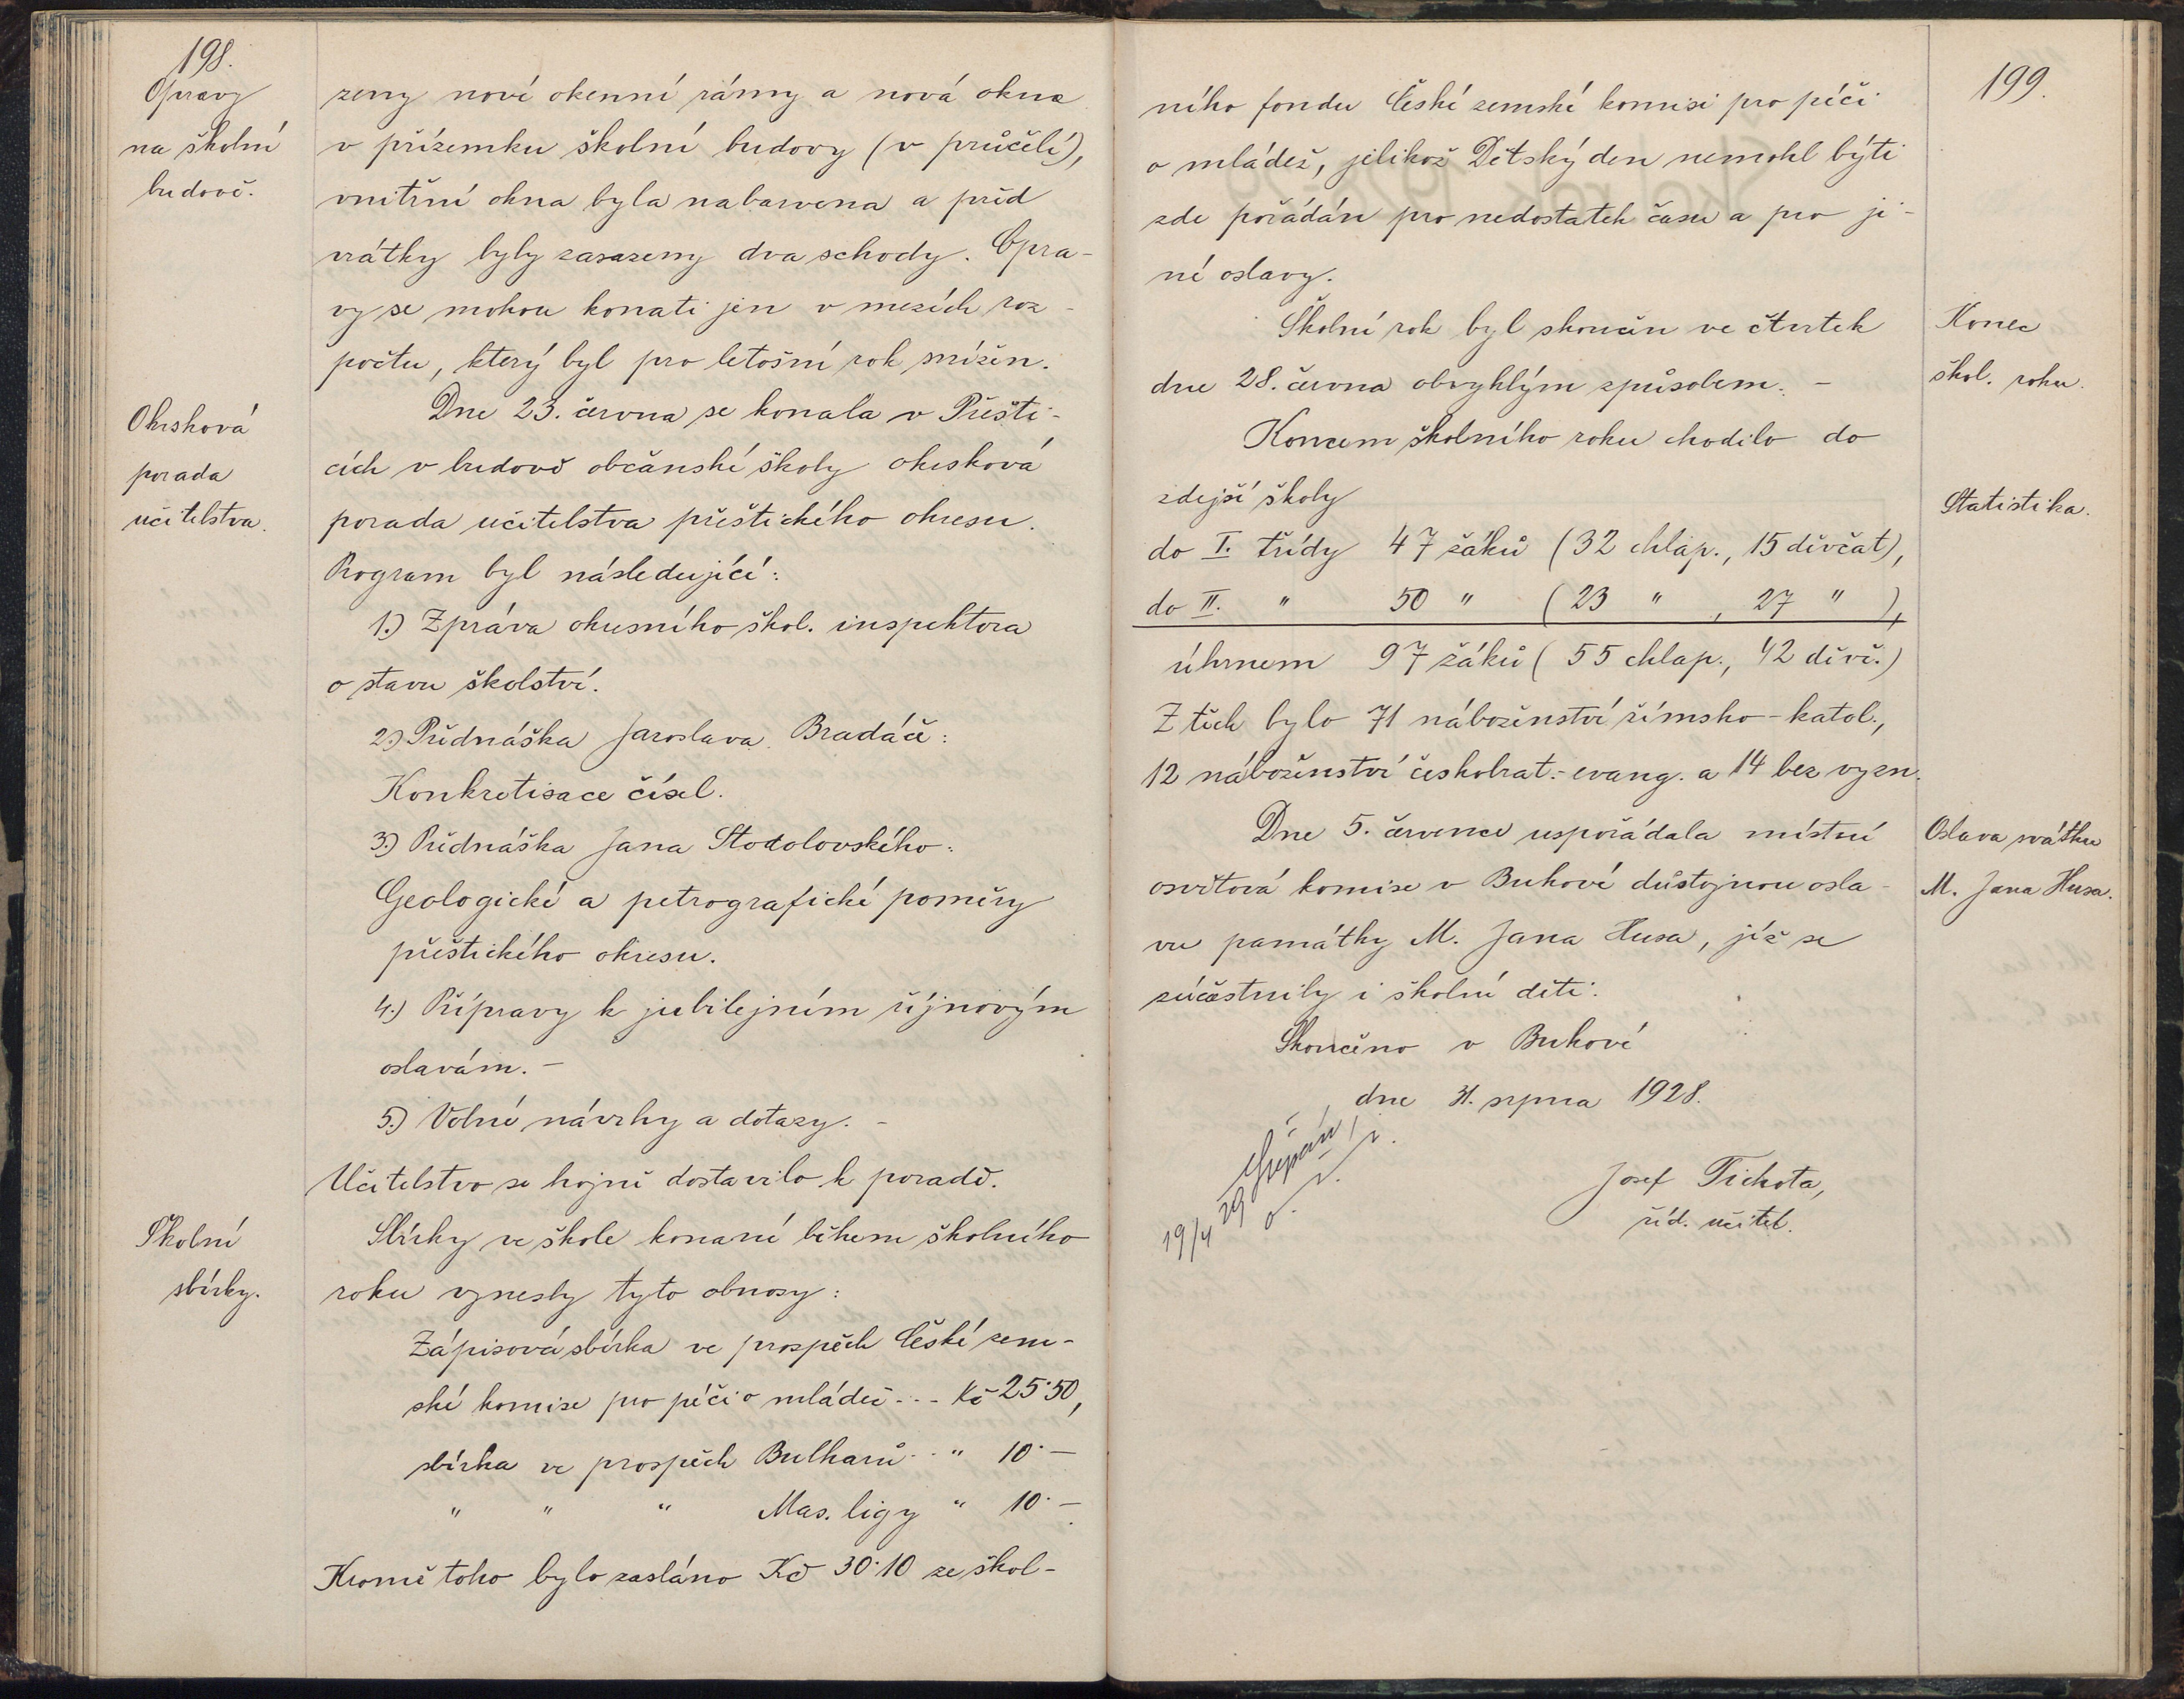 198.
Opravy
na školní
budově.
zeny nové okenní rámy a nová okna
v přízemku školní budovy (v průčelí),
vnitřní okna byla nabarvena a před
vrátky byly zasazeny dva schody. Opra-
vy se mohou konati jen v mezích roz-
počtu, který byl pro letošní rok snížen.
Okresková
porada
učitelstva.
Dne 23. června se konala v Přešti-
cích v budově občanské školy okresková
porada učitelstva přeštického okresu.
Program byl následující:
1.) Zpráva okresního škol. inspektora
o stavu školství.
2.) Přednáška Jaroslava Bradáče:
Konkretisace čísel.
3.) Přednáška Jana Stodolovského:
Geologické a petrografické poměry
přeštického okresu.
4.) Přípravy k jubilejním říjnovým
oslavám. –
5.) Volné návrhy a dotazy. –
Učitelstvo se hojně dostavilo k poradě.
Školní
sbírky.
Sbírky ve škole konané během školního
roku vynesly tyto obnosy:
Zápisová sbírka ve prospěch České zem-
ské komise pro péči o mládež ... Kč 25·50,
sbírka ve prospěch Bulharů .. " 10·–
" " " Mas. ligy " 10·–.
Kromě toho bylo zasláno Kč 30·10 ze škol-
199.
ního fondu České zemské komisi pro péči
o mládež, jelikož Dětský den nemohl býti
zde pořádán pro nedostatek času a pro ji-
né oslavy.
Konec
škol. roku.
Školní rok byl skončen ve čtvrtek
dne 28. června obvyklým způsobem. –
Statistika.
Koncem školního roku chodilo do
zdejší školy
do I. třídy 47 žáků (32 chlap., 15 děvčat),
do II. " 50 " (23 " , 27 " ),
úhrnem 97 žáků (55 chlap., 42 děvč.)
Z těch bylo 71 náboženství římsko-katol.,
12 náboženství českobrat.-evang. a 14 bez vyzn.
Oslava svátku
M. Jana Husa.
Dne 5. července uspořádala místní
osvětová komise v Bukové důstojnou osla-
vu památky M. Jana Husa, jíž se
zúčastnily i školní děti.
Skončeno v Bukové
dne 31. srpna 1928.
Josef Tichota,
říd. učitel.
19/4 29